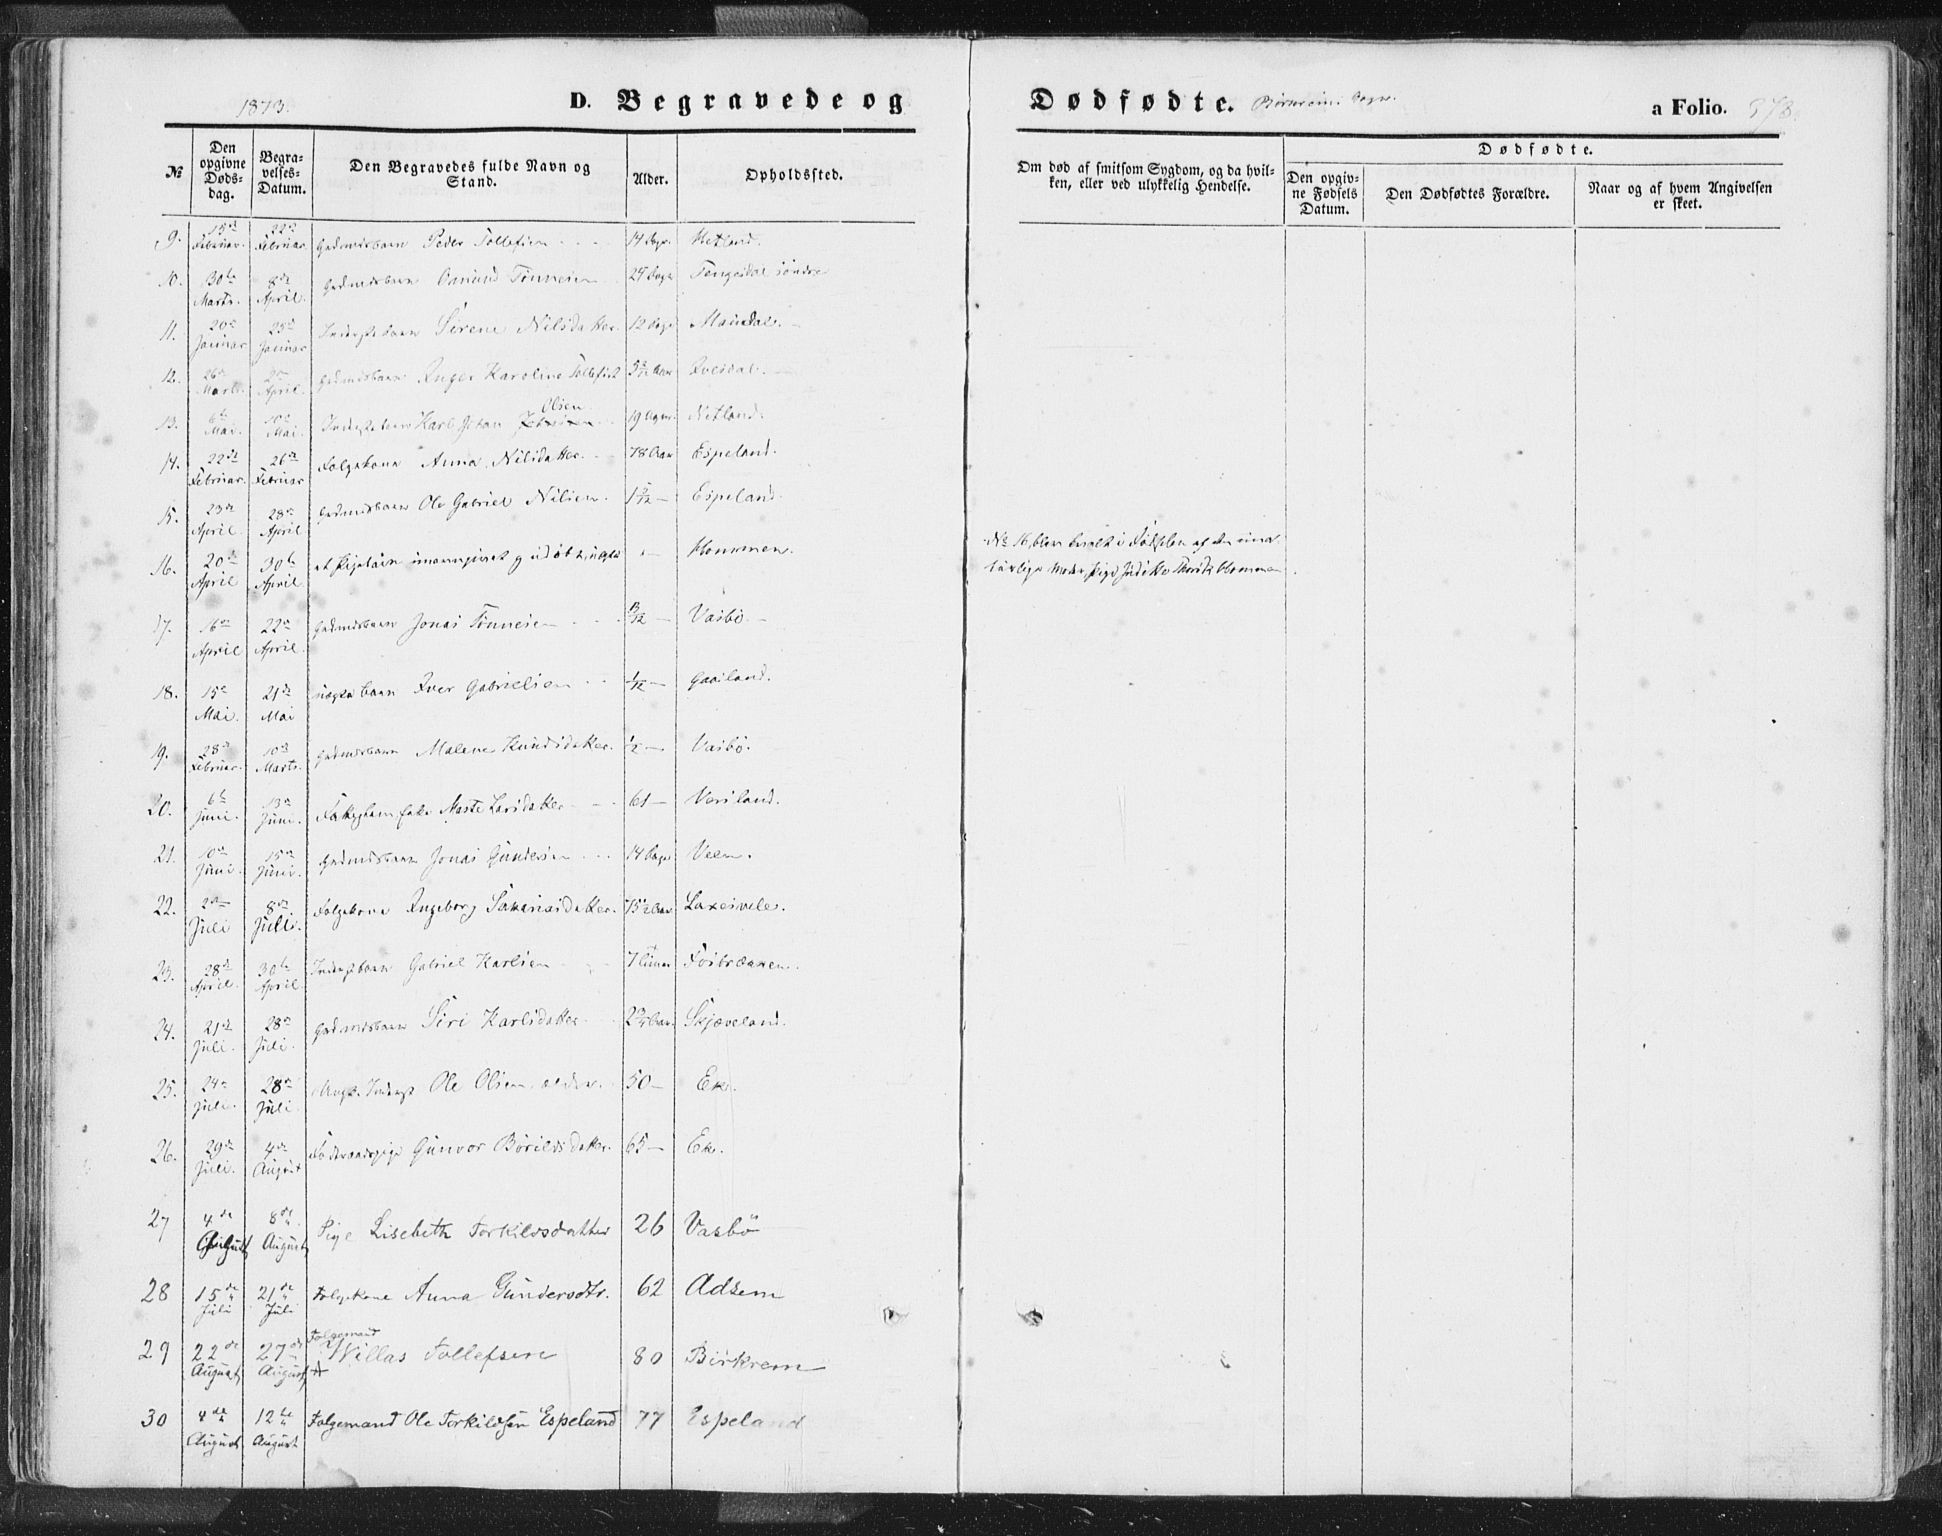 1873.
D. Begravede og
Dødfødte. Birkrem Sogn.
a Folio. 378.
№
Den opgivne Døds-dag.
Begra-velses-Datum.
Den Begravedes fulde Navn og Stand.
Alder.
Opholdssted.
Om død af smitsom Sygdom, og da hvil-
ken, eller ved ulykkelig Hendelse.
Dødfødte.
Den opgiv-ne Fødsels Datum.
Den Dødfødtes Forældre.
Naar og af hvem Angivelsen er skeet.
9. 15de Februar. 22de Februar Gadmdsbarn Peder Tollefsen 14 Dage Netland.
10. 30te Marts. 8de April. Gadmdsbarn Tønnesen 24 Dage Tengesdal søndre
11. 20de Januar 25de Januar Inderstbarn Sirene Nilsdatter. 12 Dage Maudal.
12. 26de Marts. April. Gadmdsbarn Inger Karoline Tollefsd. Aar
13. 6te Mai. 10de Mai. Inderstbarn Karl Johan Olsen 19 Netland.
14. 22de Februar. 26de Februar Folgekona Anna Nilsdatter. 78 Aar Espeland.
15. 23de April. 28de April Gadmdsbarn Ole Gabriel Nilsen. Espeland.
16. 20de April 30te April et Pigebarn unavngivet og udøbt, uægte Hommen.
№ 16, blev i Fødselen af den
Moder, Pige Hommen.
17. 16de April 22de April. Gadmdsbarn Jonas Tønnesen Vasbø
18. 15de Mai. 21de Mai uægte barn Iver Gabrielsen 1/12 Gaasland.
19. 28de Februar. 10de Marts. Gadmdsbarn Malene Knudsdatter. 1/2 Vasbø.
20. 6te Juni. 13de Juni. Marte Larsdatter 61 Versland.
21. 10de Juni. 15de Juni. Gadmdsbarn Jonas Gundersen 14 Dage Veen.
22. 2den Juli 8de Juli. Folgekone Ingeborg Sakariasdatter. 75½ Aar Laxesvele.
23. 28de April. 30te April Inderstbarn Gabriel Karlsen 7 Timer Fosbrækken.
24. 21de Juli. 28de Juli. Gadmdsbarn Siri Karlsdatter 2¾ Aar. Skjæveland.
25. 24de Juli. 28de Juli. Ungk. Inderst Ole Olsen, ældre. 50 Ek.
26. 29de Juli. 4de August Føderaadspige Gunvor Børildsdatter. 65 Ek.
27 4de August 8de August Pige Lisebeth Torkildsdatter 26 Vasbø
28 15de Juli 21de Juli Folgekone Anna Gundersdtr. 62 Adsem
29 22de August 27de August Folgemand Willas Tollefsen 80 Birkrem
30 4de August 12te August Folgemand Ole Torkildsen Espeland 77 Espeland